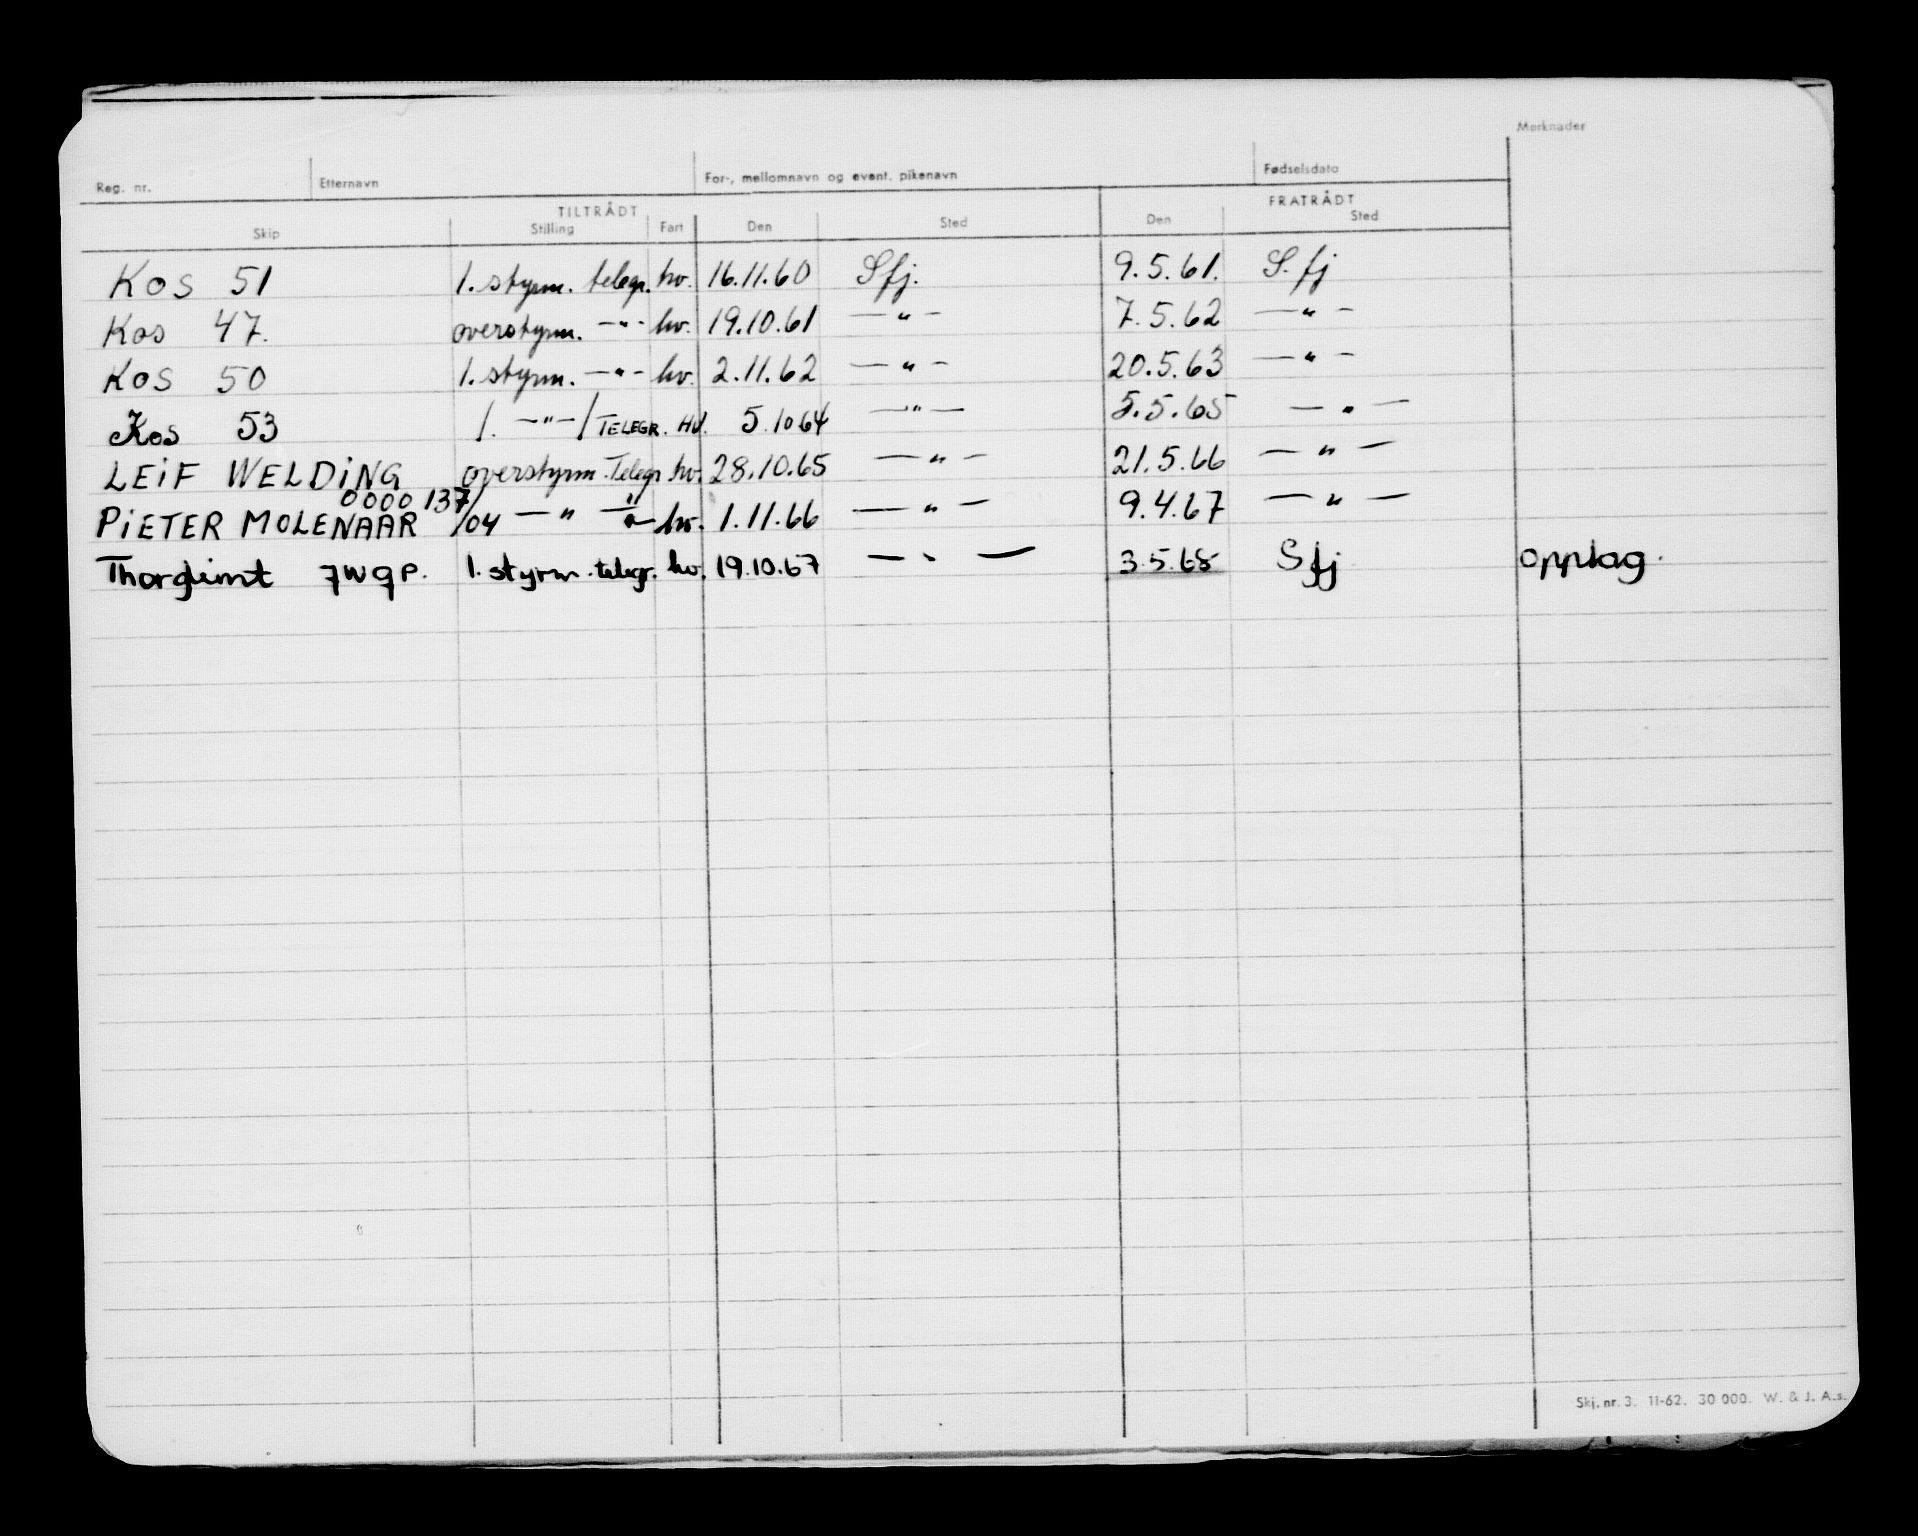 Merknader
Reg. nr. Etternavn For-, mellomnavn og event. pikenavn Fødselsdato
TILTRÅDT FRATRÅDT
Skip Stilling Fart Den Sted Den Sted
Kos 51 1. styrm. telegr. hv. 16.11.60 Sfj. 9.5.61. S. fj
Kos 47. overstyrm. —"- hv. 19.10.61 —"— 7.5.62 —"—
Kos 50 1. styrm. —"— hv. 2.11.62 —"— 20.5.63 —"—
Kos 53 1. —"—/TELEGR. HV. 5.1064 —"— 5.5.65 —"—
LEIF WELDING overstyrm. Telegr hv. 28.10.65 —"— 21.5.66 —"—
0000 137/
PIETER MOLENAAR /04 —"— —"— hv. 1.11.66 —"— 9.4.67 —"—
Thorglimt 7W9P. 1. styrm. telegr. hv. 19.10.67 —"— 3.5.68 Sfj opplag.
Skj. nr. 3. 11-62. 30 000. W. & J. A.s.